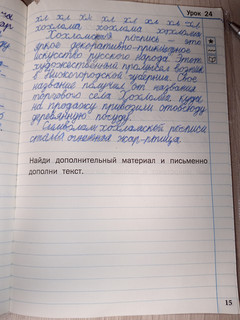 Урок 24
хл хл хл хл хл хл хл хл
хохлома хохлома хохлома
Хохломская роспись – это
яркое декоративно-прикладное
искусство русского народа. Этот
художественный промысел возник
в Нижегородской губернии. Своё
название получил от названия
торгового села Хохлома, куда
на продажу привозили отовсюду
деревянную посуду.
Символом хохломской росписи
стала огненная жар-птица.
Найди дополнительный материал и письменно
дополни текст.
15